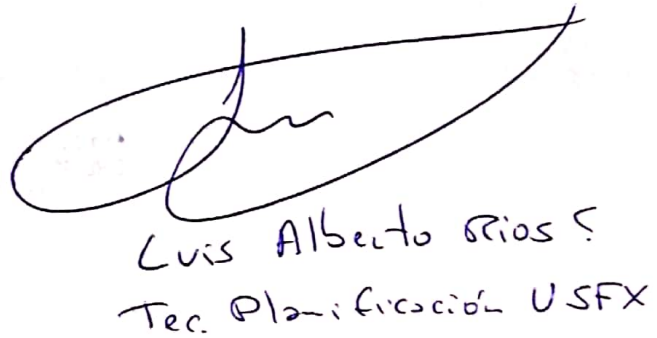 Luis Alberto Rios S
Tec. Planificación USFX